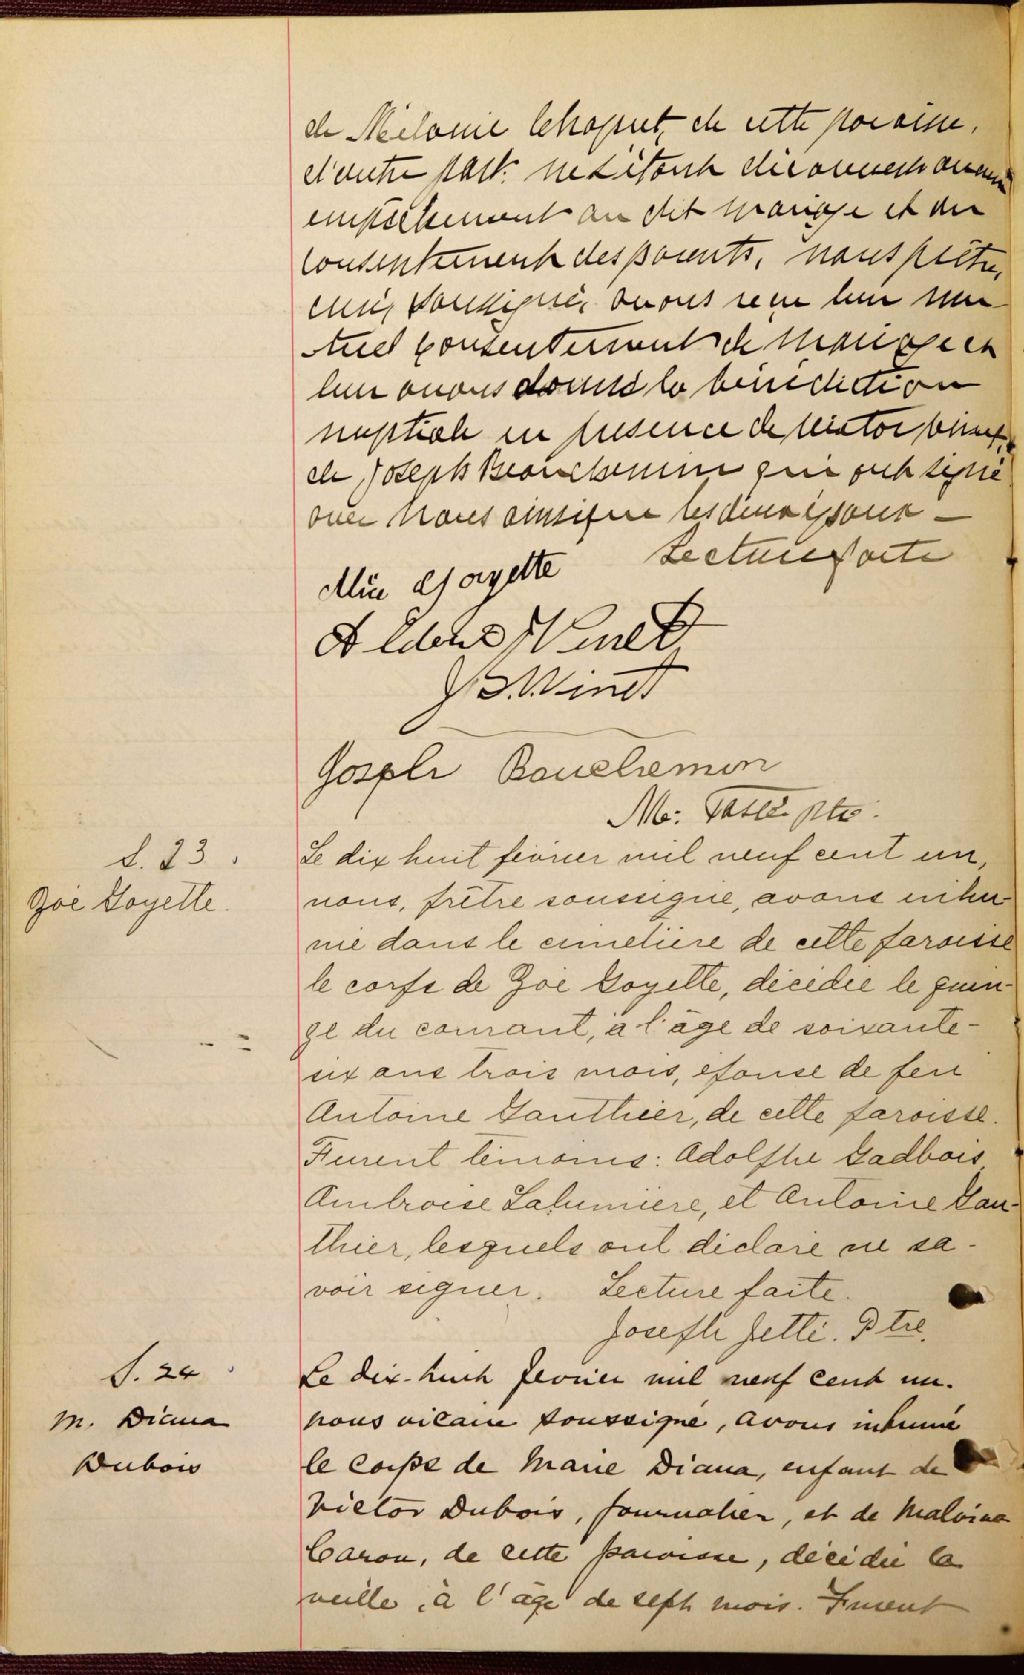 de Mélanie Choquet, de cette paroisse,
d'autre part: ne s'étant découvert aucun
empêchement au dit mariage et du
consentement des parents, nous prêtre,
curé, soussigné, avons reçu leur mu-
tuel consentement de mariage et
leur avons donné la bénédiction
nuptiale en présence de Victor Vinet,
de Joseph Beauchemin qui ont signé
avec nous ainsi que les deux époux –
Lecture faite
Alice Goyette
Aldéric Vinet
J.B. Vinet
Joseph Bauchemin
M: Tassé ptre.
S. 23
Zoé Goyette.
Le dix huit février mil neuf cent un,
nous, prêtre soussigné, avons inhu-
mé dans le cimetière de cette paroisse
le corps de Zoé Goyette, décédée le quin-
ze du courant, à l'âge de soixante-
six ans trois mois, épouse de feu
Antoine Gauthier, de cette paroisse.
Furent témoins: Adolphe Gadbois
Ambroise Lalumière, et Antoine Gau-
thier, lesquels ont déclaré ne sa-
voir signer. Lecture faite.
Joseph Jetté. Ptre.
S. 24
M. Diana
Dubois
Le dix-huit février mil neuf cent un.
nous vicaire soussigné, avons inhumé
le corps de Marie Diana, enfant de
Victor Dubois, journalier, et de Malvina
Caron, de cette paroisse, décédée la
veille, à l'âge de sept mois. Furent